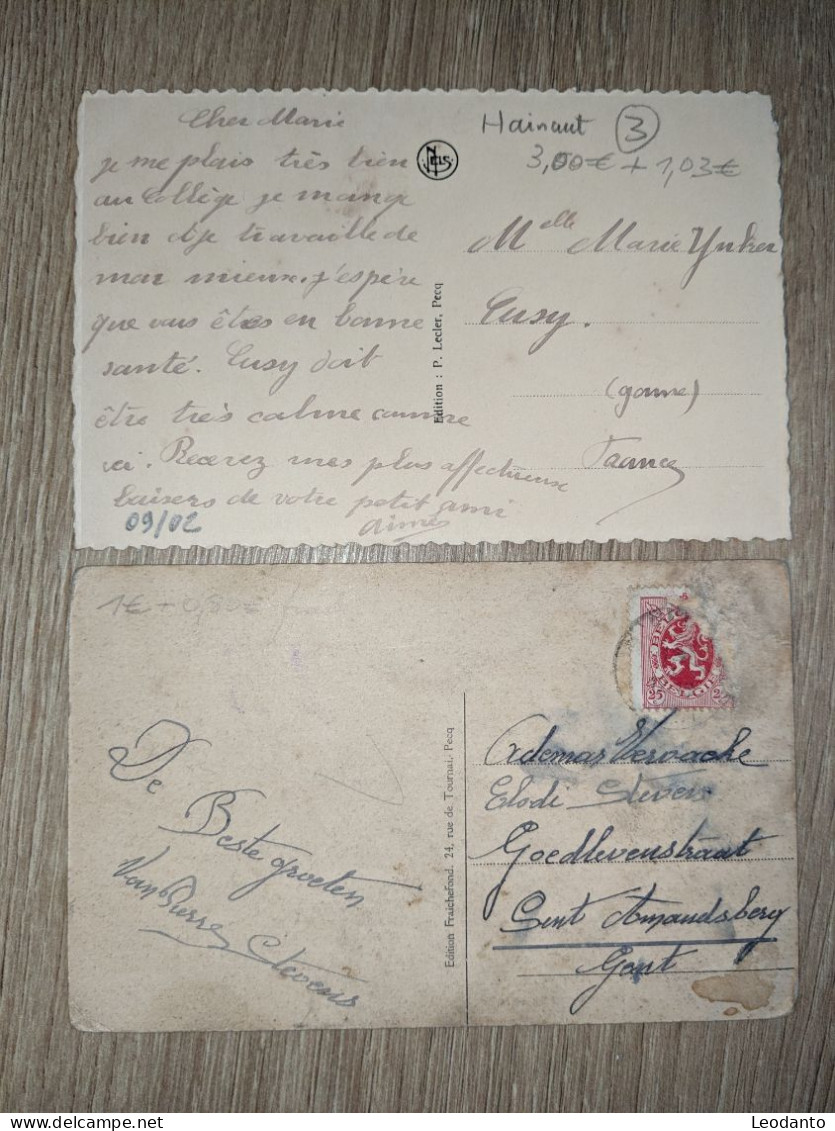 Cher Marie
je me plais très bien
au Collège je mange
bien et je travaille de
mon mieux. j'espère
que vous êtes en bonne
santé. Cusy doit
être très calme comme
ici. Recevez mes plus affectueux
baisers de votre petit ami
09/02
NELS
Edition : P. Lecler, Pecq
Hainaut 3
3,00€ + 1,03€
Melle Marie
Cusy.
(Yonne)
France
1€ + 0,80€
De Beste groeten
Van Pierre Stevens
Edition Fraichefond, 24, rue de Tournai, Pecq
BELGIE
25
Elodi Stevens
Goedlevenstraat
Sint Amandsberg
Gent
Leodanto